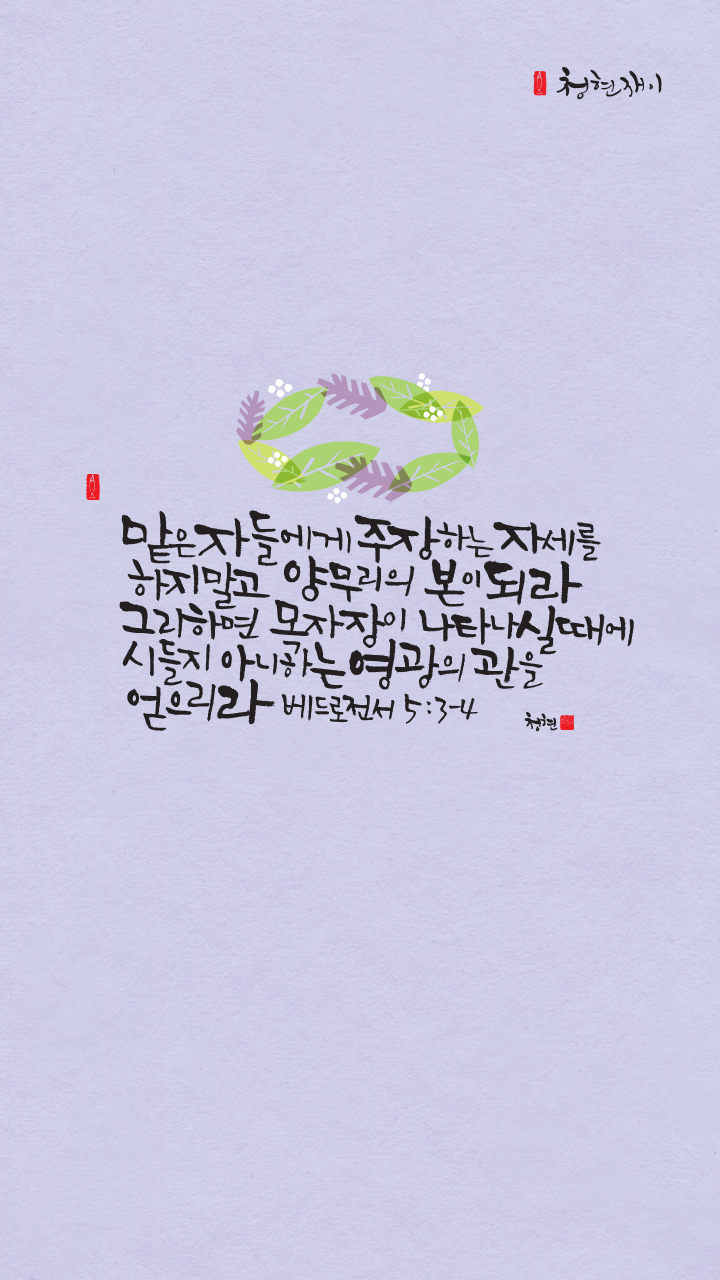 청현재이
맡은자들에게 주장하는 자세를
하지말고 양무리의 본이되라
그리하면 목자장이 나타나실때에
시들지 아니하는 영광의 관을
얻으리라 베드로전서 5:3-4
청현